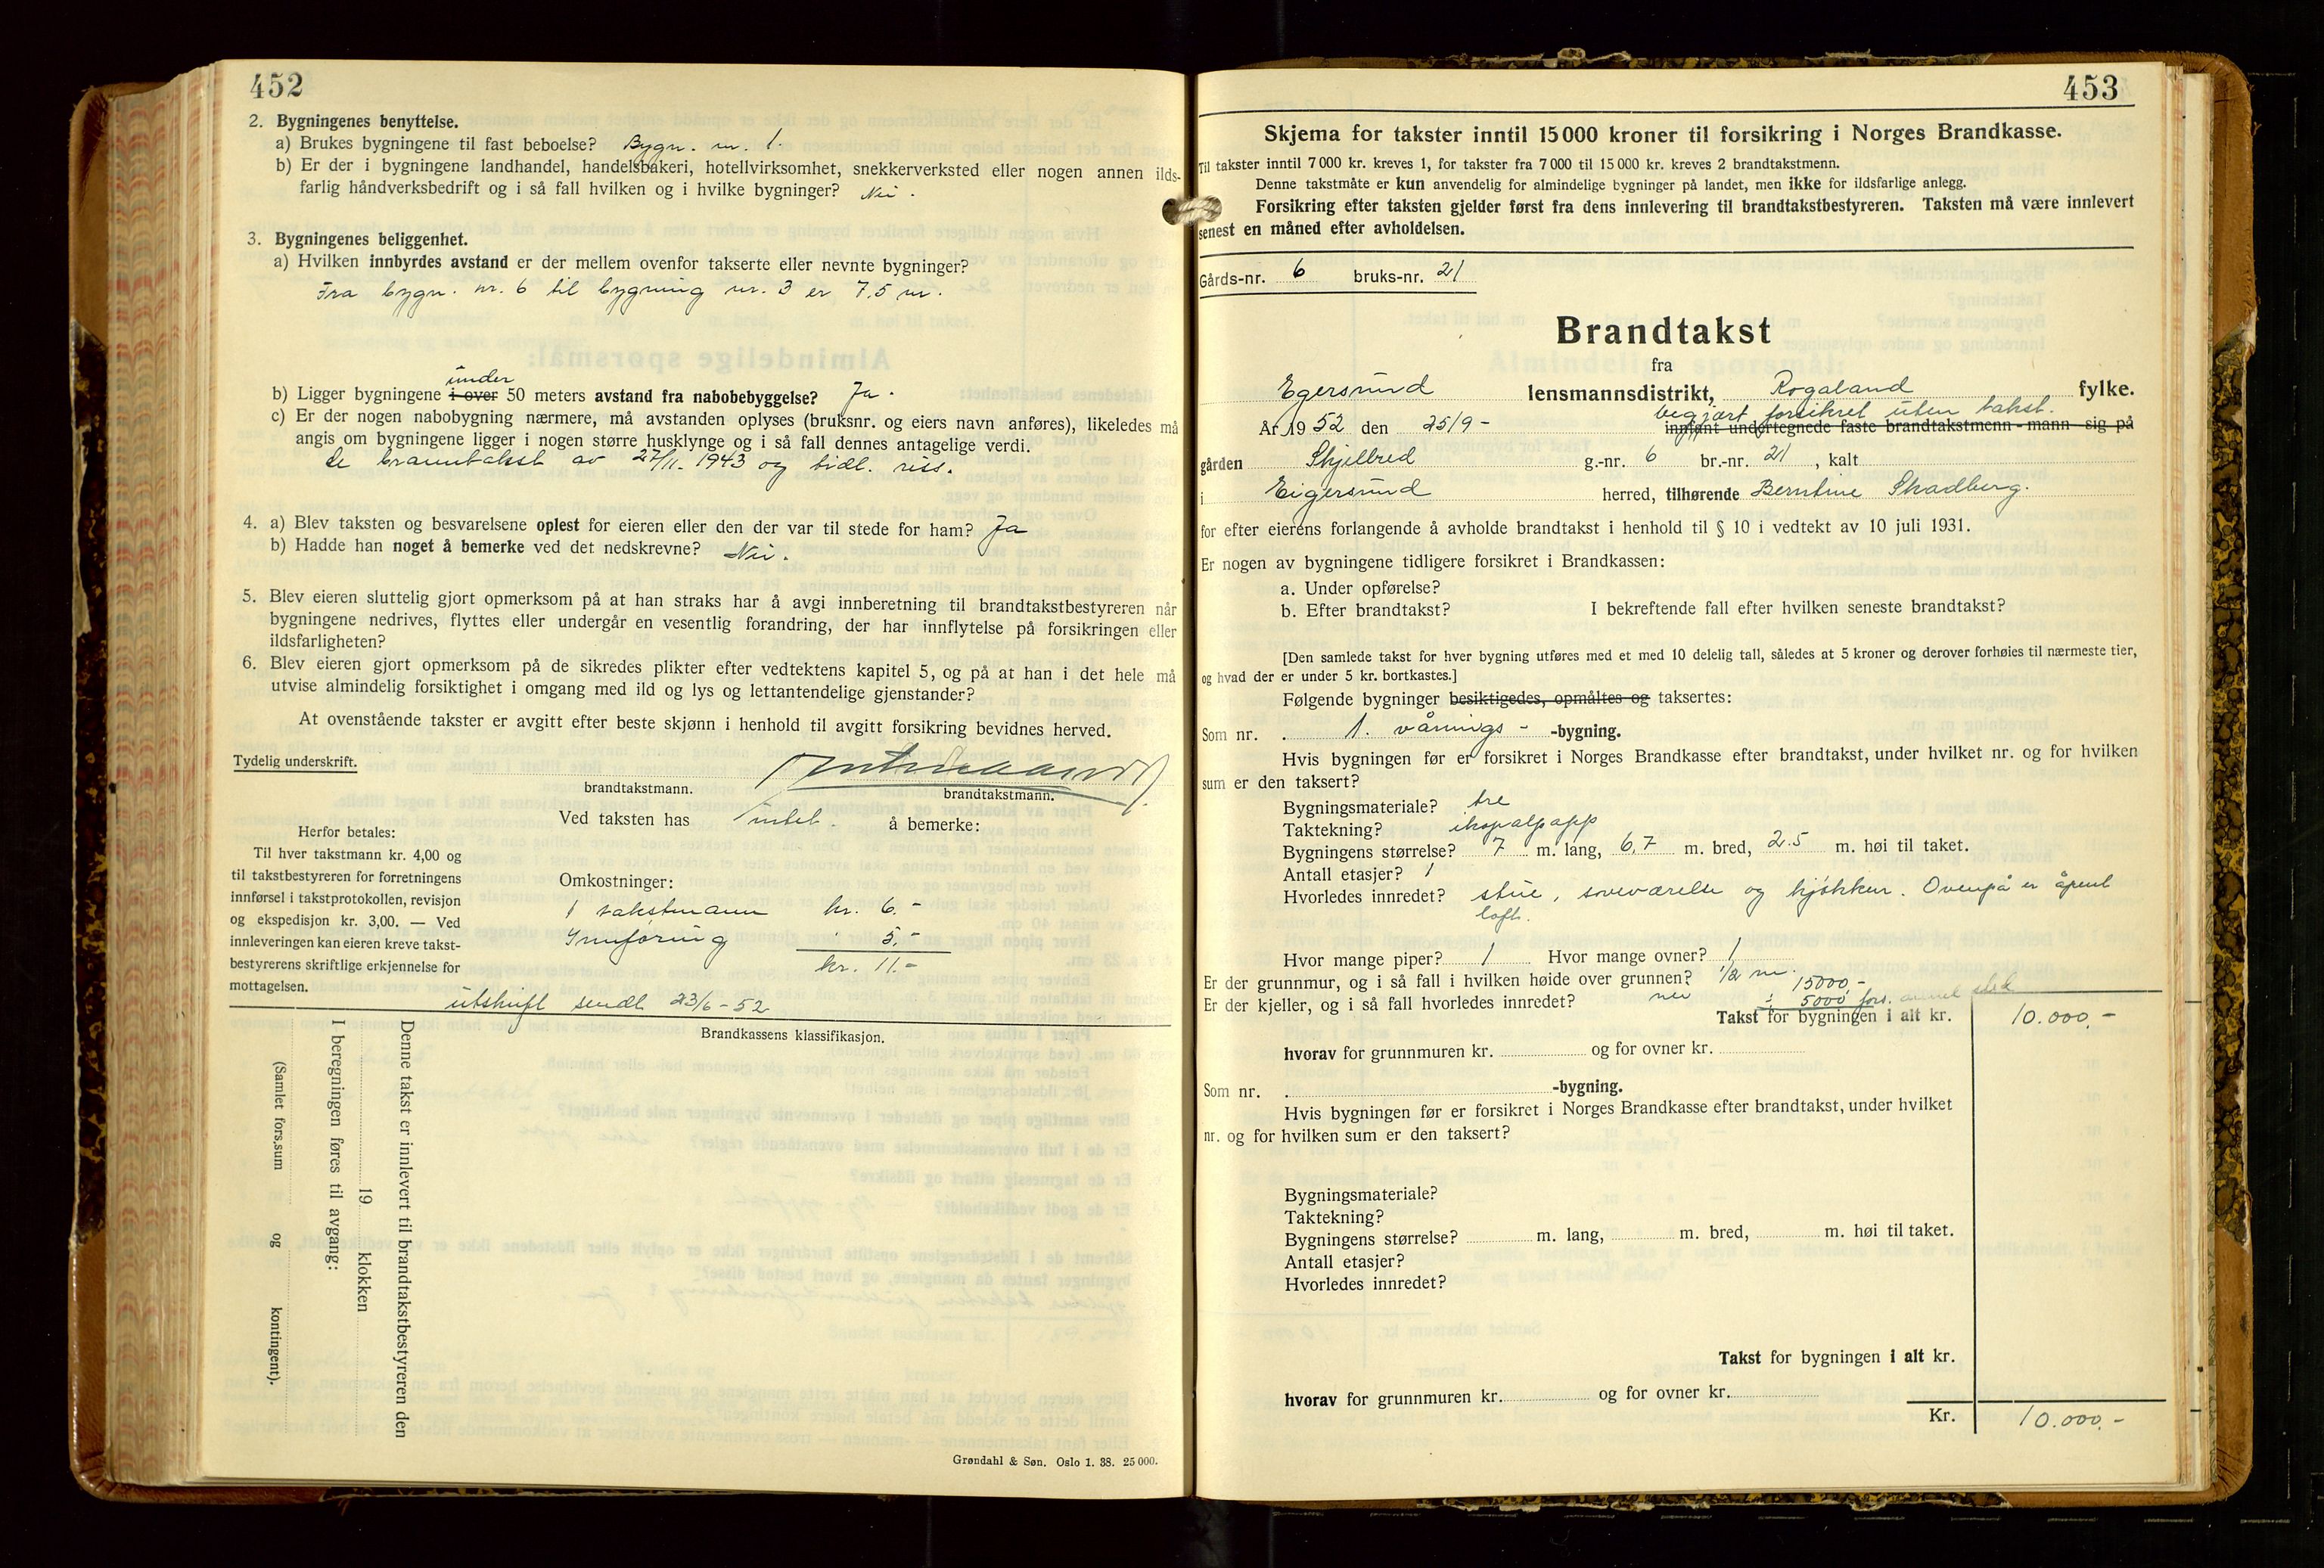 452
2. Bygningenes benyttelse.
a) Brukes bygningene til fast beboelse? Bygn. nr. 1.
b) Er der i bygningene landhandel, handelsbakeri, hotellvirksomhet, snekkerverksted eller nogen annen ilds-
farlig håndverksbedrift og i så fall hvilken og i hvilke bygninger? Nei.
3. Bygningenes beliggenhet.
a) Hvilken innbyrdes avstand er der mellem ovenfor takserte eller nevnte bygninger?
Fra bygn. nr. 6 til bygning nr. 3 er 7.5 m.
under
b) Ligger bygningene i over 50 meters avstand fra nabobebyggelse? Ja.
c) Er der nogen nabobygning nærmere, må avstanden oplyses (bruksnr. og eiers navn anføres), likeledes må
angis om bygningene ligger i nogen større husklynge og i så fall dennes antagelige verdi.
Se branntakst av 27/11. 1943 og tidl. riss.
4. a) Blev taksten og besvarelsene oplest for eieren eller den der var til stede for ham? Ja
b) Hadde han noget å bemerke ved det nedskrevne? Nei.
5. Blev eieren sluttelig gjort opmerksom på at han straks har å avgi innberetning til brandtakstbestyreren når
bygningene nedrives, flyttes eller undergår en vesentlig forandring, der har innflytelse på forsikringen eller
ildsfarligheten?
6. Blev eieren gjort opmerksom på de sikredes plikter efter vedtektens kapitel 5, og på at han i det hele må
utvise almindelig forsiktighet i omgang med ild og lys og lettantendelige gjenstander?
At ovenstående takster er avgitt efter beste skjønn i henhold til avgitt forsikring bevidnes herved.
Tydelig underskrift.
brandtakstmann. brandtakstmann.
Ved taksten has intet. å bemerke:
Herfor betales:
Til hver takstmann kr. 4,00 og
til takstbestyreren for forretningens
innførsel i takstprotokollen, revisjon
og ekspedisjon kr. 3,00. — Ved
innleveringen kan eieren kreve takst-
bestyrerens skriftlige erkjennelse for
mottagelsen.
Omkostninger:
1 takstmann kr. 6.-
Innføring 5.-
kr. 11.-
utskrift sendt 23/6-52
Brandkassens klassifikasjon.
Denne takst er innlevert til brandtakstbestyreren den
19 klokken
I beregningen føres til avgang:
(Samlet fors.sum og kontingent).
Grøndahl & Søn. Oslo 1. 38. 25 000.
453
Skjema for takster inntil 15 000 kroner til forsikring i Norges Brandkasse.
Til takster inntil 7 000 kr. kreves 1, for takster fra 7 000 til 15 000 kr. kreves 2 brandtakstmenn.
Denne takstmåte er kun anvendelig for almindelige bygninger på landet, men ikke for ildsfarlige anlegg.
Forsikring efter taksten gjelder først fra dens innlevering til brandtakstbestyreren. Taksten må være innlevert
senest en måned efter avholdelsen.
Gårds-nr. 6 bruks-nr. 21
Brandtakst
fra
Egersund lensmannsdistrikt, Rogaland fylke.
begjært forsikret uten takst.
År 1952 den 25/9- innfant undertegnede faste brandtakstmenn - mann sig på
gården Skjelbred g.-nr. 6 br.-nr. 21, kalt
i Eigersund herred, tilhørende Berntine Skadberg.
for efter eierens forlangende å avholde brandtakst i henhold til § 10 i vedtekt av 10 juli 1931.
Er nogen av bygningene tidligere forsikret i Brandkassen:
a. Under opførelse?
b. Efter brandtakst? I bekreftende fall efter hvilken seneste brandtakst?
[Den samlede takst for hver bygning utføres med et med 10 delelig tall, således at 5 kroner og derover forhøies til nærmeste tier,
og hvad der er under 5 kr. bortkastes.]
Følgende bygninger besiktigedes, opmåltes og taksertes:
Som nr. 1. vånings- -bygning.
Hvis bygningen før er forsikret i Norges Brandkasse efter brandtakst, under hvilket nr. og for hvilken
sum er den taksert?
Bygningsmateriale? tre
Taktekning? ikopalpapp
Bygningens størrelse? 7 m. lang, 6,7 m. bred, 2.5 m. høi til taket.
Antall etasjer? 1
Hvorledes innredet? stue, soveværelse og kjøkken. Ovenpå er åpent
loft.
Hvor mange piper? 1 Hvor mange ovner? 1
Er der grunnmur, og i så fall i hvilken høide over grunnen? 1/2 m. 15000,-
Er der kjeller, og i så fall hvorledes innredet? nei ÷ 5000 fors. annet sted
Takst for bygningen i alt kr. 10.000,-
hvorav for grunnmuren kr. og for ovner kr.
Som nr. -bygning.
Hvis bygningen før er forsikret i Norges Brandkasse efter brandtakst, under hvilket
nr. og for hvilken sum er den taksert?
Bygningsmateriale?
Taktekning?
Bygningens størrelse? m. lang, m. bred, m. høi til taket.
Antall etasjer?
Hvorledes innredet?
Takst for bygningen i alt kr.
hvorav for grunnmuren kr. og for ovner kr.
Kr. 10.000,-